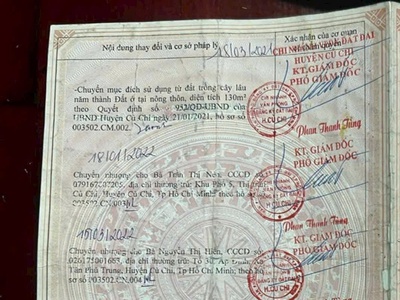 Nội dung thay đổi và cơ sở pháp lý
Xác nhận của cơ quan
có thẩm quyền
15/03/2021
CHI NHÁNH ĐẤT ĐAI
HUYỆN CỦ CHI
KT.GIÁM ĐỐC
PHÓ GIÁM ĐỐC
-Chuyển mục đích sử dụng từ đất trồng cây lâu
năm thành Đất ở tại nông thôn, diện tích 130m² theo
Quyết định số 953/QĐ-UBND của
UBND Huyện Củ Chi ngày 21/01/2021, hồ sơ số
003502.CM.002
Phan Thanh Tùng
KT.GIÁM ĐỐC
PHÓ GIÁM ĐỐC
18/01/2022
Chuyển nhượng cho Bà Trần Thị Nés, CCCD số
địa chỉ thường trú: Khu Phố 5, Thị trấn
Củ Chi, Huyện Củ Chi, Tp Hồ Chí Minh; theo hồ sơ
003502.CN.003
Phan Thanh Tùng
KT.GIÁM ĐỐC
PHÓ GIÁM ĐỐC
15/03/2022
Chuyển nhượng cho Bà Nguyễn Thị Hiền, CCCD số
026175001685, địa chỉ thường trú: Tổ 30, Ấp Đình, xã
Tân Phú Trung, Huyện Củ Chi, Tp Hồ Chí Minh; theo hồ
sơ 003502.CN.004